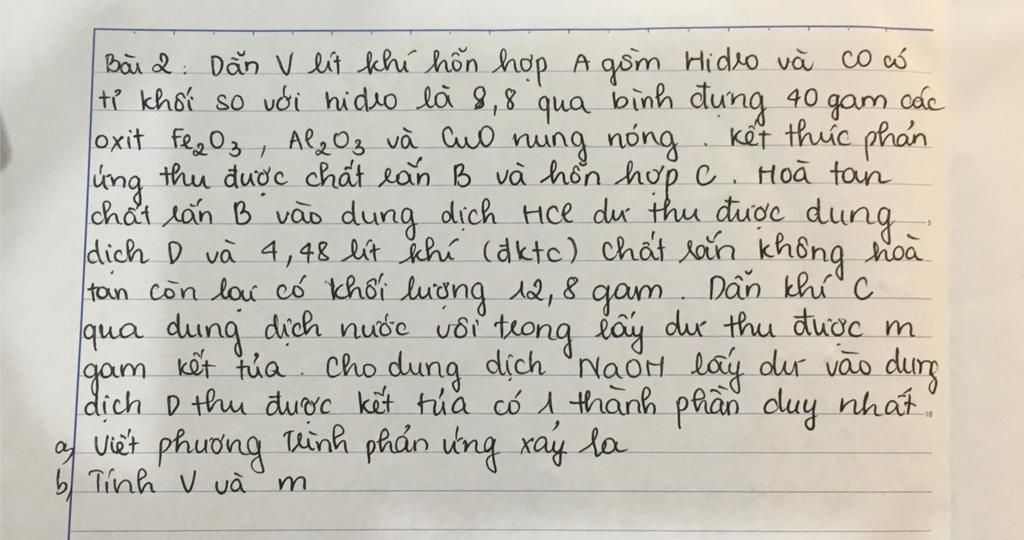 Bài 2: Dẫn V lít khí hỗn hợp A gồm Hidro và CO có
tỉ khối so với hidro là 8,8 qua bình đựng 40 gam các
oxit Fe₂O₃, Al₂O₃ và CuO nung nóng. Kết thúc phản
ứng thu được chất rắn B và hỗn hợp C. Hoà tan
chất rắn B vào dung dịch HCl dư thu được dung
dịch D và 4,48 lít khí (đktc) chất rắn không hoà
tan còn lại có khối lượng 12,8 gam. Dẫn khí C
qua dung dịch nước vôi trong lấy dư thu được m
gam kết tủa. Cho dung dịch NaOH lấy dư vào dung
dịch D thu được kết tủa có 1 thành phần duy nhất.
a, Viết phương trình phản ứng xảy ra
b, Tính V và m